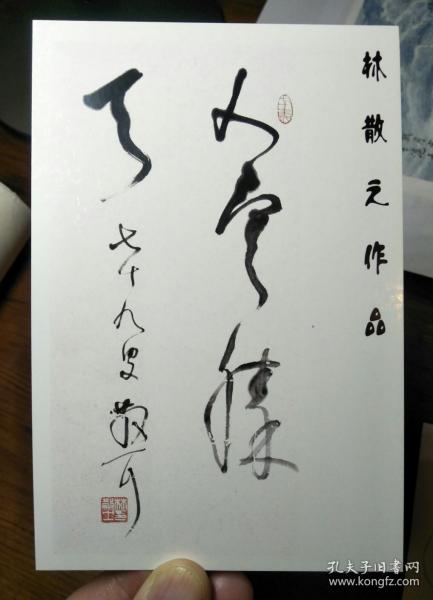 林散之作品
人定勝
天
七十九叟散耳
孔夫子旧书网
www.kongfz.com